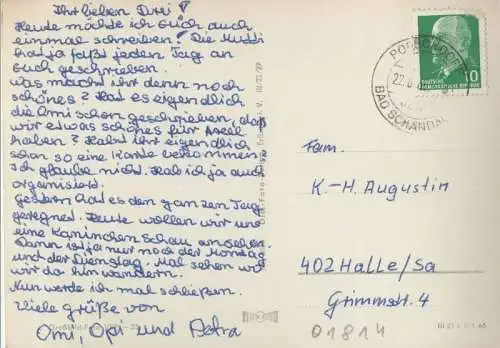 Ihr lieben Drei!
Heute möchte ich Euch auch
einmal schreiben. Die Mutti
hat ja faßt jeden Tag an
Euch geschrieben.
Was macht ihr denn noch
schönes? Hat es eigendlich
die Omi schon geschrieben, daß
wir etwas schönes für Axel
haben? Habt ihr eigendlich
schon so eine Karte bekommen?
Ich glaube nicht. Hab ich ja auch
organisiert.
Gestern hat es den ganzen Tag
geregnet. Heute wollen wir uns
eine Kaninchen Schau ansehen.
Dann ist ja nur noch der Montag
und der Dienstag. Mal sehen wo
wir da hinwandern.
Nun werde ich mal schließen.
Viele grüße von
Omi, Opi und Petra
BAD SCHANDAU
DEUTSCHE
DEMOKRATISCHE REPUBLIK
10
Fam.
K.-H. Augustin
402 Halle/Sa
Grimmstr. 4
01814